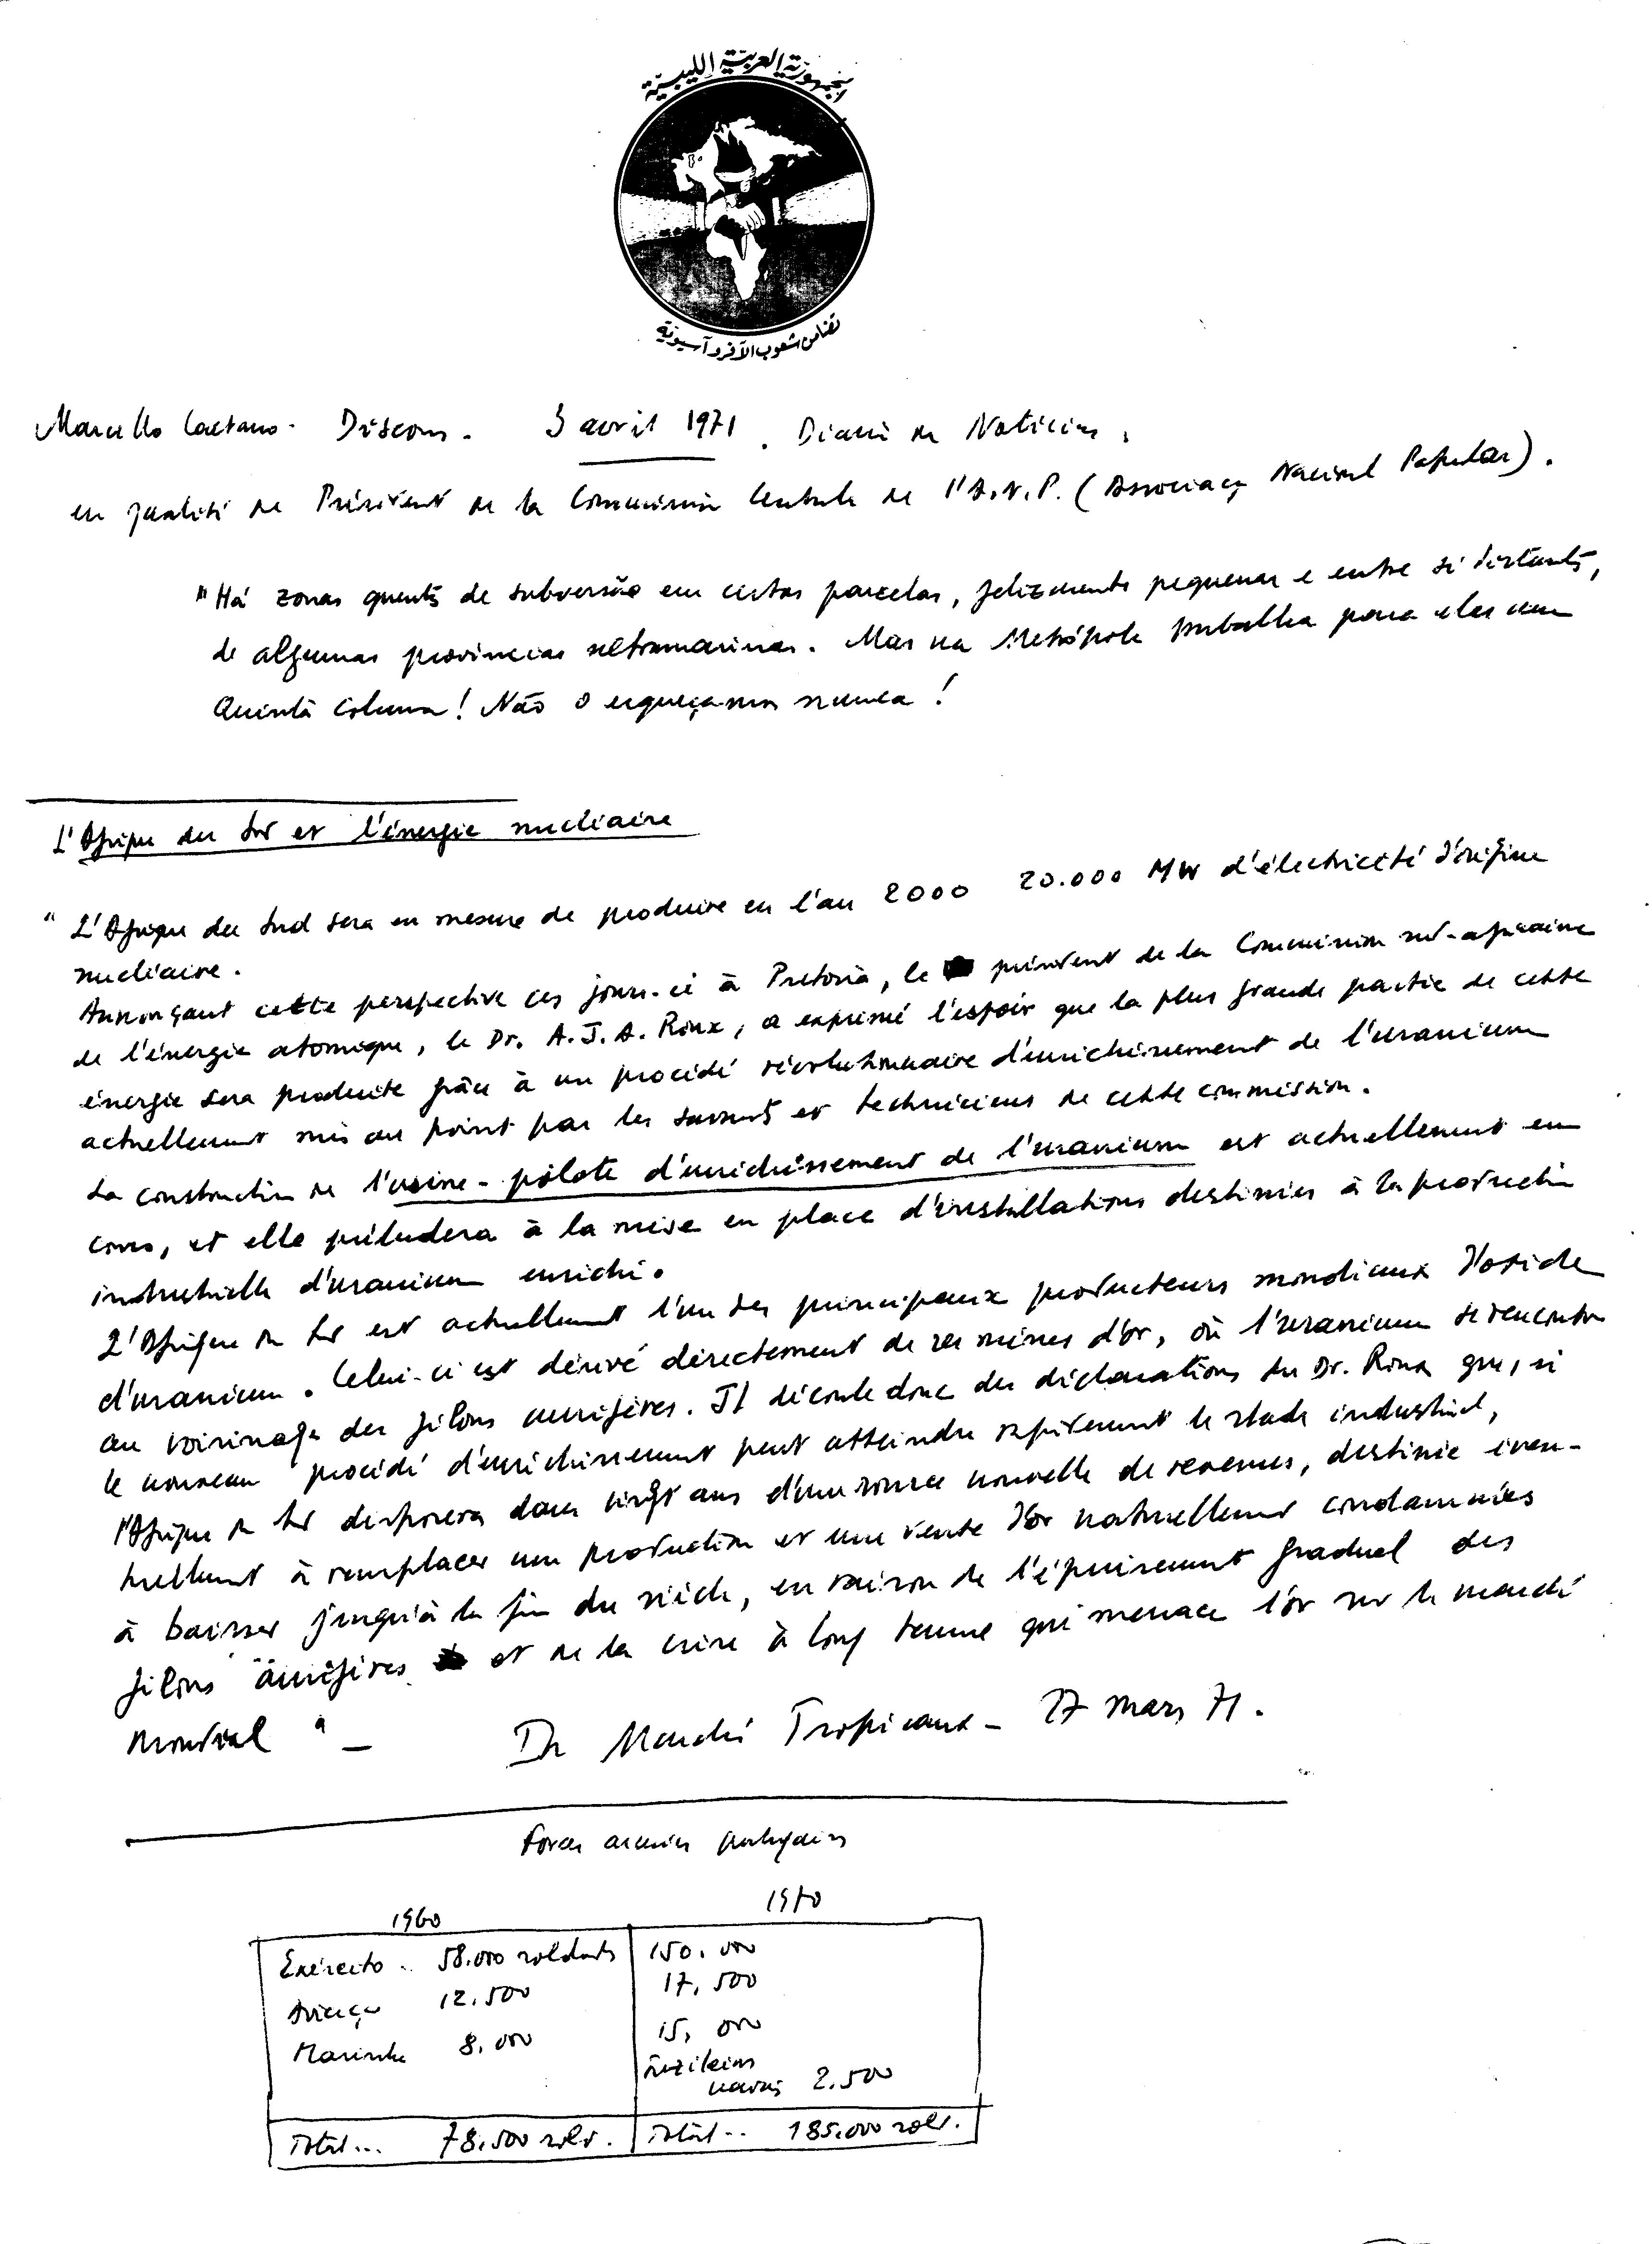 الجمهورية العربية الليبية
تضامن شعوب الآفروآسيوية
Marcello Caetano - Discours. 3 avril 1971. Diario de Noticias.
en qualité de Président de la Commission Centrale de l'A.N.P. (Associação Nacional Popular).
"Há zonas quentes de subversão em certas parcelas, felizmente pequenas e entre si distantes,
de algumas provincias ultramarinas. Mas na Metrópole trabalha para elas uma
Quinta Coluna! Não o esqueçamos nunca!
L'Afrique du Sud et l'énergie nucléaire
"L'Afrique du Sud sera en mesure de produire en l'an 2000 20.000 MW d'électricité d'origine
nucléaire.
Annonçant cette perspective ces jours-ci à Pretoria, le président de la Commission sud-africaine
de l'énergie atomique, le Dr. A.J.A. Roux, a exprimé l'espoir que la plus grande partie de cette
énergie sera produite grâce à un procédé révolutionnaire d'enrichissement de l'uranium
actuellement mis au point par les savants et techniciens de cette commission.
La construction de l'usine-pilote d'enrichissement de l'uranium est actuellement en
cours, et elle préludera à la mise en place d'installations destinées à la production
industrielle d'uranium enrichi.
L'Afrique du Sud est actuellement l'un des principaux producteurs mondiaux d'oxide
d'uranium. Celui-ci est dérivé directement de ses mines d'or, où l'uranium se rencontre
au voisinage des filons aurifères. Il découle donc des déclarations du Dr. Roux que, si
le nouveau procédé d'enrichissement peut atteindre rapidement le stade industriel,
l'Afrique du Sud disposera dans vingt ans d'une source nouvelle de revenus, destinée éven-
tuellement à remplacer une production et une vente d'or naturellement condamnées
à baisser jusqu'à la fin du siècle, en raison de l'épuisement graduel des
filons aurifères et de la crise à long terme qui menace l'or sur le marché
mondial" - In Marchés Tropicaux - 27 mars 71.
Forces armées portugaises
1960 1970
Exército .. 58.000 soldats 150.000
Aviação 12.500 17.500
Marinha 8.000 15.000
fuzileiros
navais 2.500
Total... 78.500 sold. Total .. 185.000 sold.